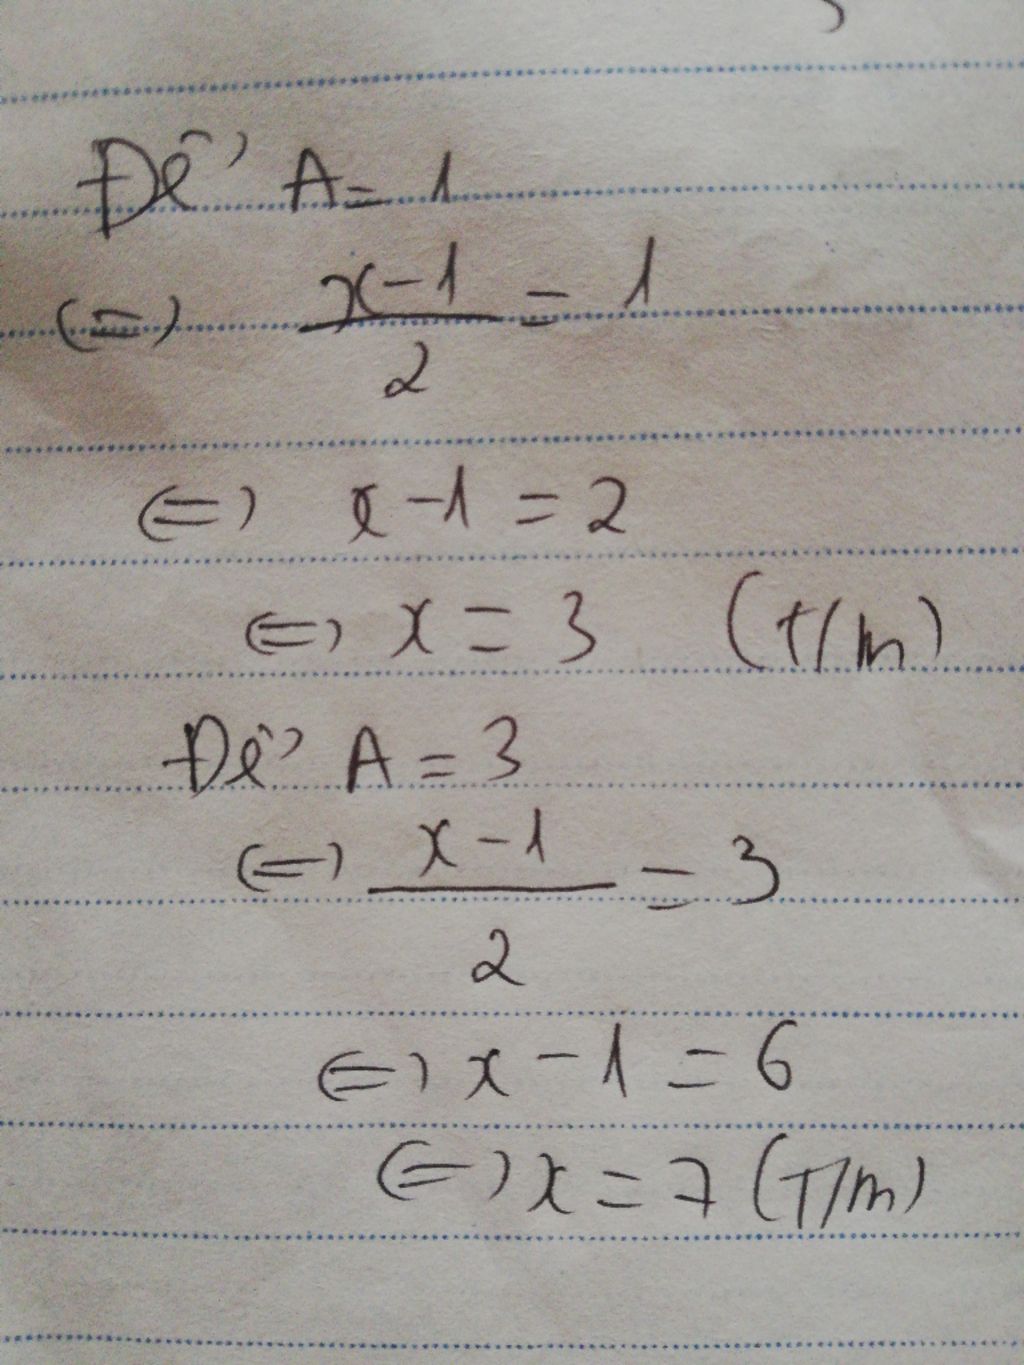 Để A = 1
(=) x-1/2 = 1
(=) x-1 = 2
(=) x = 3 (t/m)
Để A = 3
(=) x-1/2 = 3
(=) x-1 = 6
(=) x = 7 (T/m)